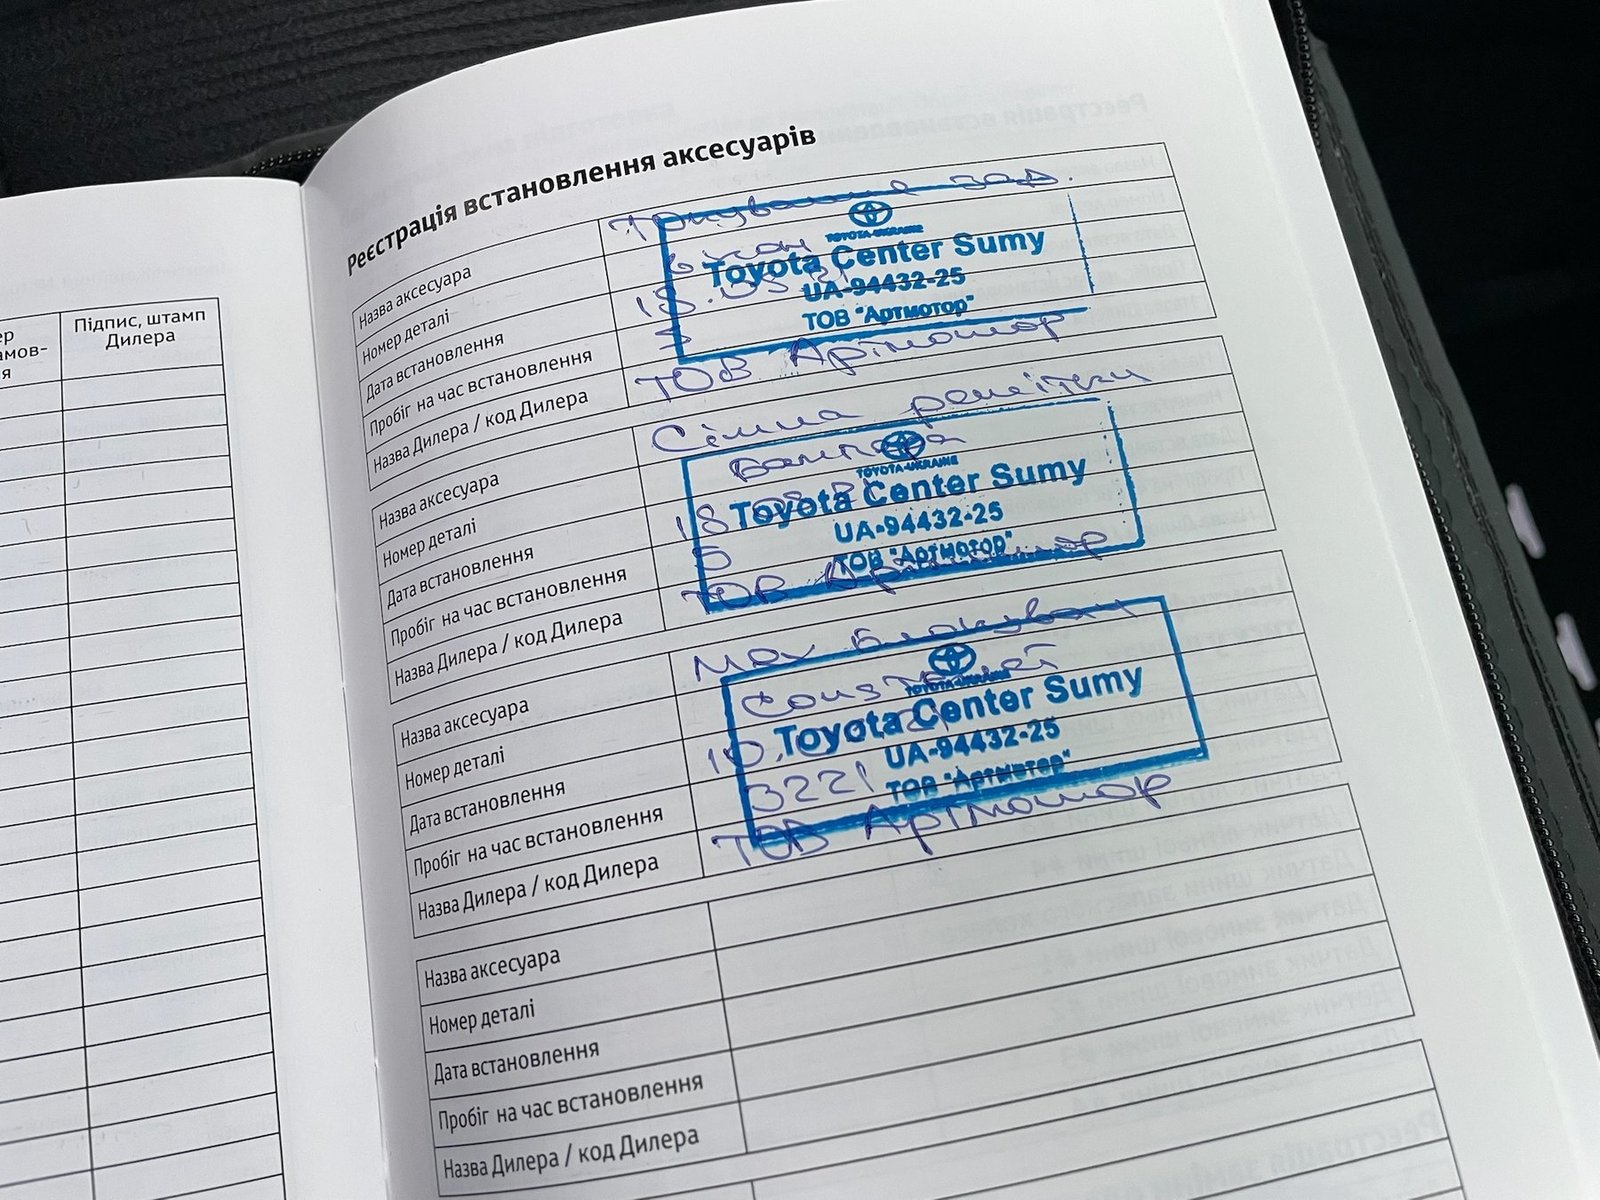 Підпис, штамп
Дилера
Реєстрація встановлення аксесуарів
Назва аксесуара Тонування зад.
Номер деталі вікон
Дата встановлення 18.05.21
Пробіг на час встановлення 5
Назва Дилера / код Дилера ТОВ Артмотор
TOYOTA-UKRAINE
Toyota Center Sumy
UA-94432-25
ТОВ "Артмотор"
Назва аксесуара Сітка решітки
Номер деталі бампера
Дата встановлення 18
Пробіг на час встановлення 5
Назва Дилера / код Дилера ТОВ Артмотор
TOYOTA-UKRAINE
Toyota Center Sumy
UA-94432-25
ТОВ "Артмотор"
Назва аксесуара Мех блокувач
Номер деталі Construct
Дата встановлення 10
Пробіг на час встановлення 3221
Назва Дилера / код Дилера ТОВ Артмотор
TOYOTA-UKRAINE
Toyota Center Sumy
UA-94432-25
ТОВ "Артмотор"
Назва аксесуара
Номер деталі
Дата встановлення
Пробіг на час встановлення
Назва Дилера / код Дилера